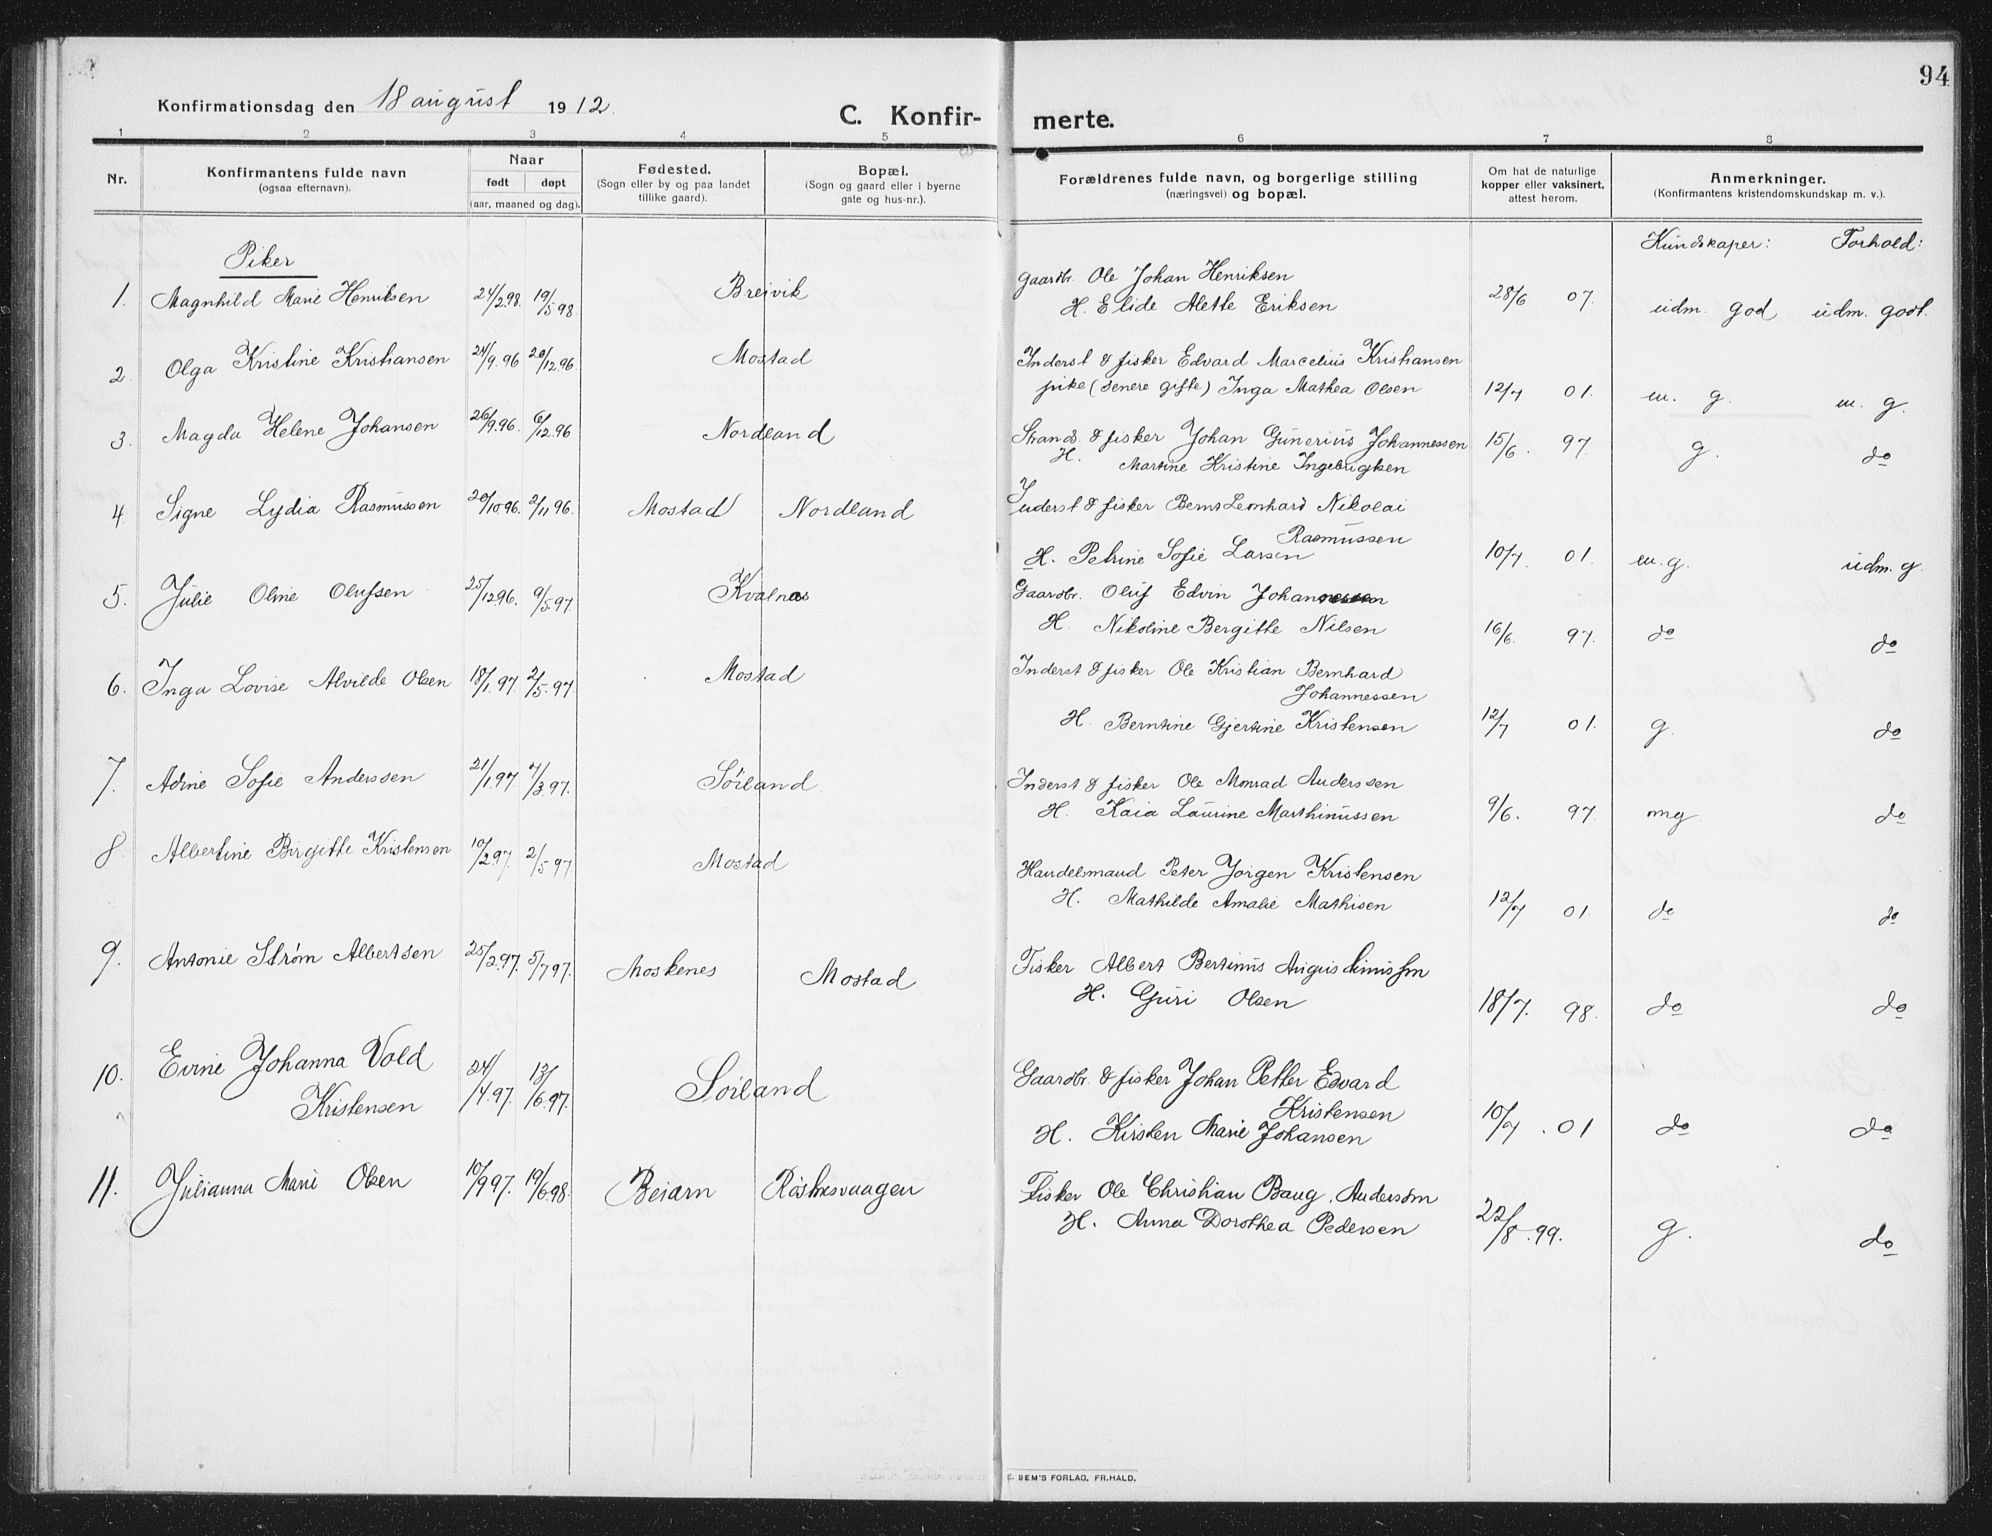 94
Konfirmationsdag den 18 august 1912.
C. Konfir- merte.
1 2 3 4 5 6 7 8
Nr.
Konfirmantens fulde navn
(ogsaa efternavn).
Naar
født døpt
(aar, maaned og dag).
Fødested.
(Sogn eller by og paa landet
tillike gaard).
Bopæl.
(Sogn og gaard eller i byerne
gate og hus-nr.).
Forældrenes fulde navn, og borgerlige stilling
(næringsvei) og bopæl.
Om hat de naturlige
kopper eller vaksinert,
attest herom.
Anmerkninger.
(Konfirmantens kristendomskundskap m. v.).
Kundskaper: Forhold:
Piker
1. Magnhild Marie Henriksen 24/2.98. 19/5 98 Breivik gaardbr. Ole Johan Henriksen
H. Elide Alette Eriksen 28/6 07. udm. god udm. godt.
2. Olga Kristine Kristiansen 24/9.96 20/12.96. Mostad Inderst & fisker Edvard Marcelius Kristiansen
pike (senere gifte) Inga Mathea Olsen 12/7 01. m. g. m. g.
3. Magda Helene Johansen 26/9.96. 6/12.96 Nordland Strands. & fisker Johan Gunerius Johannessen
H. Martine Kristine Ingebrigtsen 15/6. 97. g. do
4. Signe Lydia Rasmussen 20/10 96. 2/11 96. Mostad Nordland Inderst & fisker Bernt Leonhard Nikolai
Rasmussen
H. Petrine Sofie Larsen 10/7. 01. m. g. udm. g.
5. Julie Oline Olufsen 25/12 96. 9/5.97. Kvalnes Gaardbr. Oluf Edvin Johannessen
H. Nikoline Bergitte Nilsen 16/6. 97. do do
6. Inga Lovise Alvilde Olsen 18/1.97. 2/5.97. Mostad Inderst & fisker Ole Kristian Bernhard
Johannessen
H. Berntine Gjertine Kristensen 12/7 01. g. do
7. Adine Sofie Anderssen 21/1.97. 7/3.97. Søiland Inderst & fisker Ole Monrad Anderssen
H. Kaia Laurine Marthinussen 9/6. 97. mg. do
8. Albertine Birgitte Kristensen 10/2.97. 2/5 97. Mostad Handelsmand Peter Jørgen Kristensen
H. Mathilde Amalie Mathisen 12/7 01. do do
9. Antonie Strøm Albertsen 25/2.97. 5/7 97. Moskenes Mostad Fisker Albert Bertinus Augustinussen
H. Guri Olsen 18/7. 98. do do
10. Evine Johanna Vold
Kristensen 24/4.97. 13/6.97. Søiland Gaardbr. & fisker Johan Petter Edvard
Kristensen
H. Kirsten Marie Johansen 10/7. 01 do do
11. Julianna Marie Olsen 10/9 97. 19/6.98. Beiarn Røstnesvaagen Fisker Ole Christian Baug. Anderssen
H. Anna Dorothea Pedersen 22/8. 99. g. do
SEM'S FORLAG, FR.HALD.